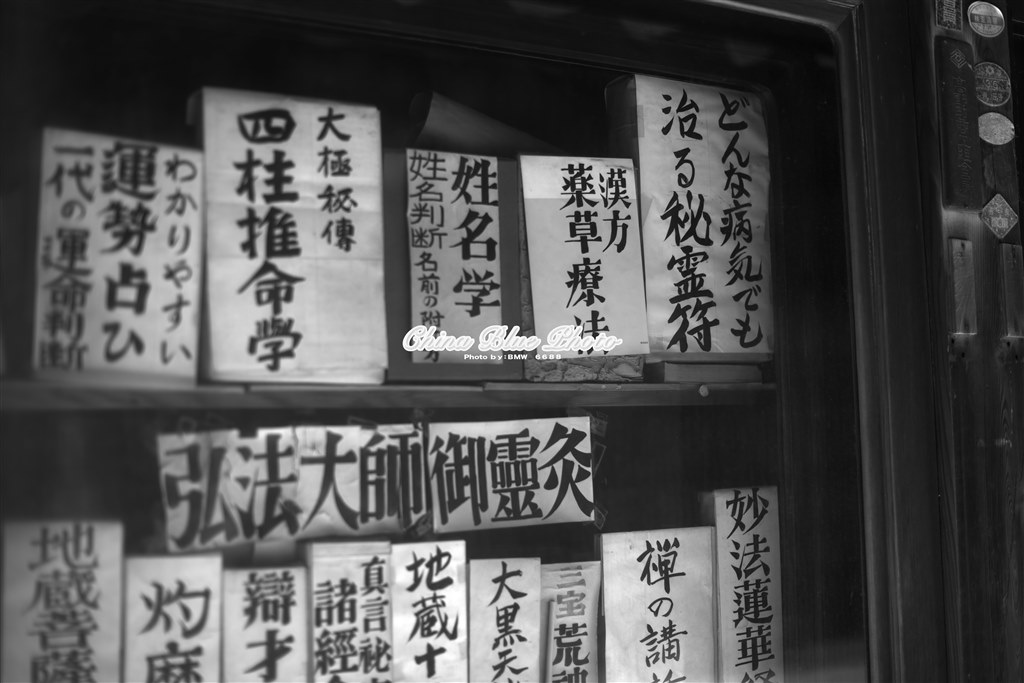 どんな病気でも
治る秘霊符
漢方
薬草療法
姓名学
姓名判断名前の附
大極秘傳
四柱推命學
わかりやすい
運勢占ひ
一代の運命判断
China Blue Photo
Photo by:BMW 6688
弘法大師御靈灸
妙法蓮華経
禅の講
三宝荒神
大黒天
地蔵十
真言祕
諸經
辯才
灼麻
地蔵菩薩